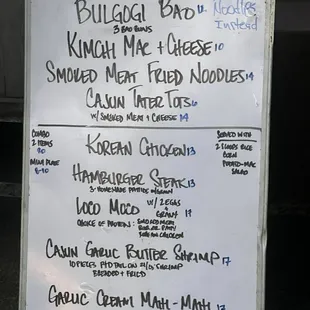 BULGOGI BAO 11
Noodles
Instead
3 BAO BUNS
KIMCHI MAC + CHEESE 10
SMOKED MEAT FRIED NOODLES 14
CAJUN TATER TOTS 6
W/ SMOKED MEAT + CHEESE 14
COMBO
2 ITEMS
20
MINI PLATE
KOREAN CHICKEN 13
SERVED WITH
2 SCOOPS RICE
CORN
POTATO-MAC
SALAD
HAMBURGER STEAK 13
3 HOMEMADE PATTIES W/ GRAVY
LOCO MOCO W/ 2 EGGS
+ GRAVY 14
CHOICE OF PROTEIN: SMOKED MEAT
BURGER PATTY
KOREAN CHICKEN
CAJUN GARLIC BUTTER SHRIMP 17
10 PIECES SHRIMP
BREADED + FRIED
GARLIC CREAM MAHI-MAHI